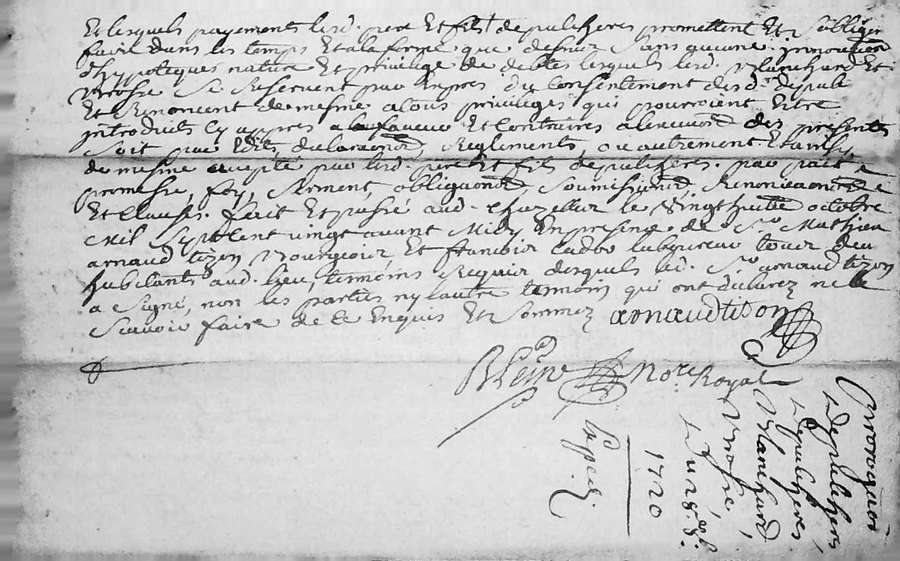 Et lesquels payements lesd. pere Et fils depulcheres promettent Et s'obliger
faire dans les temps Et a la forme que dessus sans aucune innovation
d'hypoteques nature Et privilege de debtes lesquels led. Blanchard Et
se Reservent par Expres du Consentement desd. depul
Et Renoncent de mesme a tous privileges qui pourroient Estre
introduits Cy appres a la faveur Et Contraires a des presents
soit par Edits, declaraons, Reglements, ou autrement
de mesme accepté par lesd. pere Et fils depulcheres. par
promesse, foy, serment, obligaons, soumissions, Renonciaons
Et Clauses. fait Et passé aud. Chazelles le Vingthuit octobre
Mil Sept Cent vingt avant Midy En presence de Sr. Mathieu
arnaud tizon Bourgeois Et francois laboureur tous deux
habitants aud. lieu, temoins Requis desquels led. Sr. arnaud tizon
a signé, non les parties ny lautre temoin qui ont declarez ne le
Scavoir faire de ce Enquis Et Sommez arnaudtison
Not.re Royal
Exped.
1720
Du 28e 8bre
Blanchard
depulcheres
depulcheres,
prorogaon